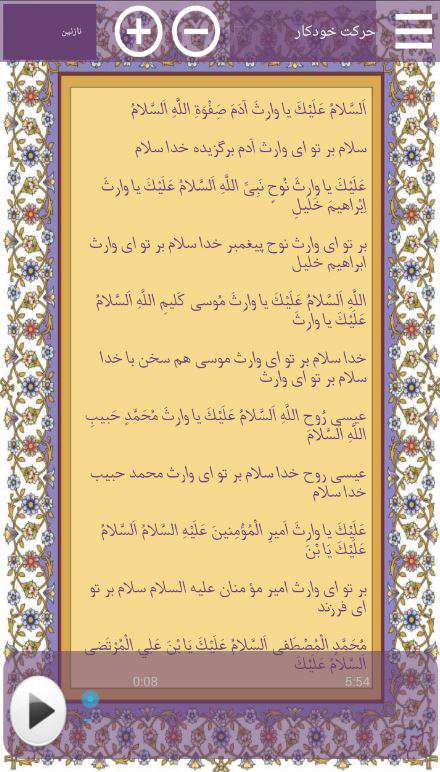 نازنین
حرکت خودکار
اَلسَّلامُ عَلَیْكَ یا وارِثَ آدَمَ صَفْوَةِ اللَّهِ اَلسَّلامُ
سلام بر تو ای وارث آدم برگزیده خدا سلام
عَلَیْكَ یا وارِثَ نُوحٍ نَبِیِّ اللَّهِ اَلسَّلامُ عَلَیْكَ یا وارِثَ
اِبْراهیمَ خَلیلِ
بر تو ای وارث نوح پیغمبر خدا سلام بر تو ای وارث
ابراهیم خلیل
اللَّهِ اَلسَّلامُ عَلَیْكَ یا وارِثَ مُوسی کَلیمِ اللَّهِ اَلسَّلامُ
عَلَیْكَ یا وارِثَ
خدا سلام بر تو ای وارث موسی هم سخن با خدا
سلام بر تو ای وارث
عیسی رُوحِ اللَّهِ اَلسَّلامُ عَلَیْكَ یا وارِثَ مُحَمَّدٍ حَبیبِ
اللَّهِ اَلسَّلامُ
عیسی روح خدا سلام بر تو ای وارث محمد حبیب
خدا سلام
عَلَیْكَ یا وارِثَ اَمیرِ الْمُؤْمِنینَ عَلَیْهِ السَّلامُ اَلسَّلامُ
عَلَیْكَ یَا بْنَ
بر تو ای وارث امیر مؤ منان علیه السلام سلام بر تو
ای فرزند
مُحَمَّدٍ الْمُصْطَفی اَلسَّلامُ عَلَیْكَ یَا بْنَ عَلِیٍ الْمُرْتَضی
اَلسَّلامُ عَلَیْكَ
0:08
5:54